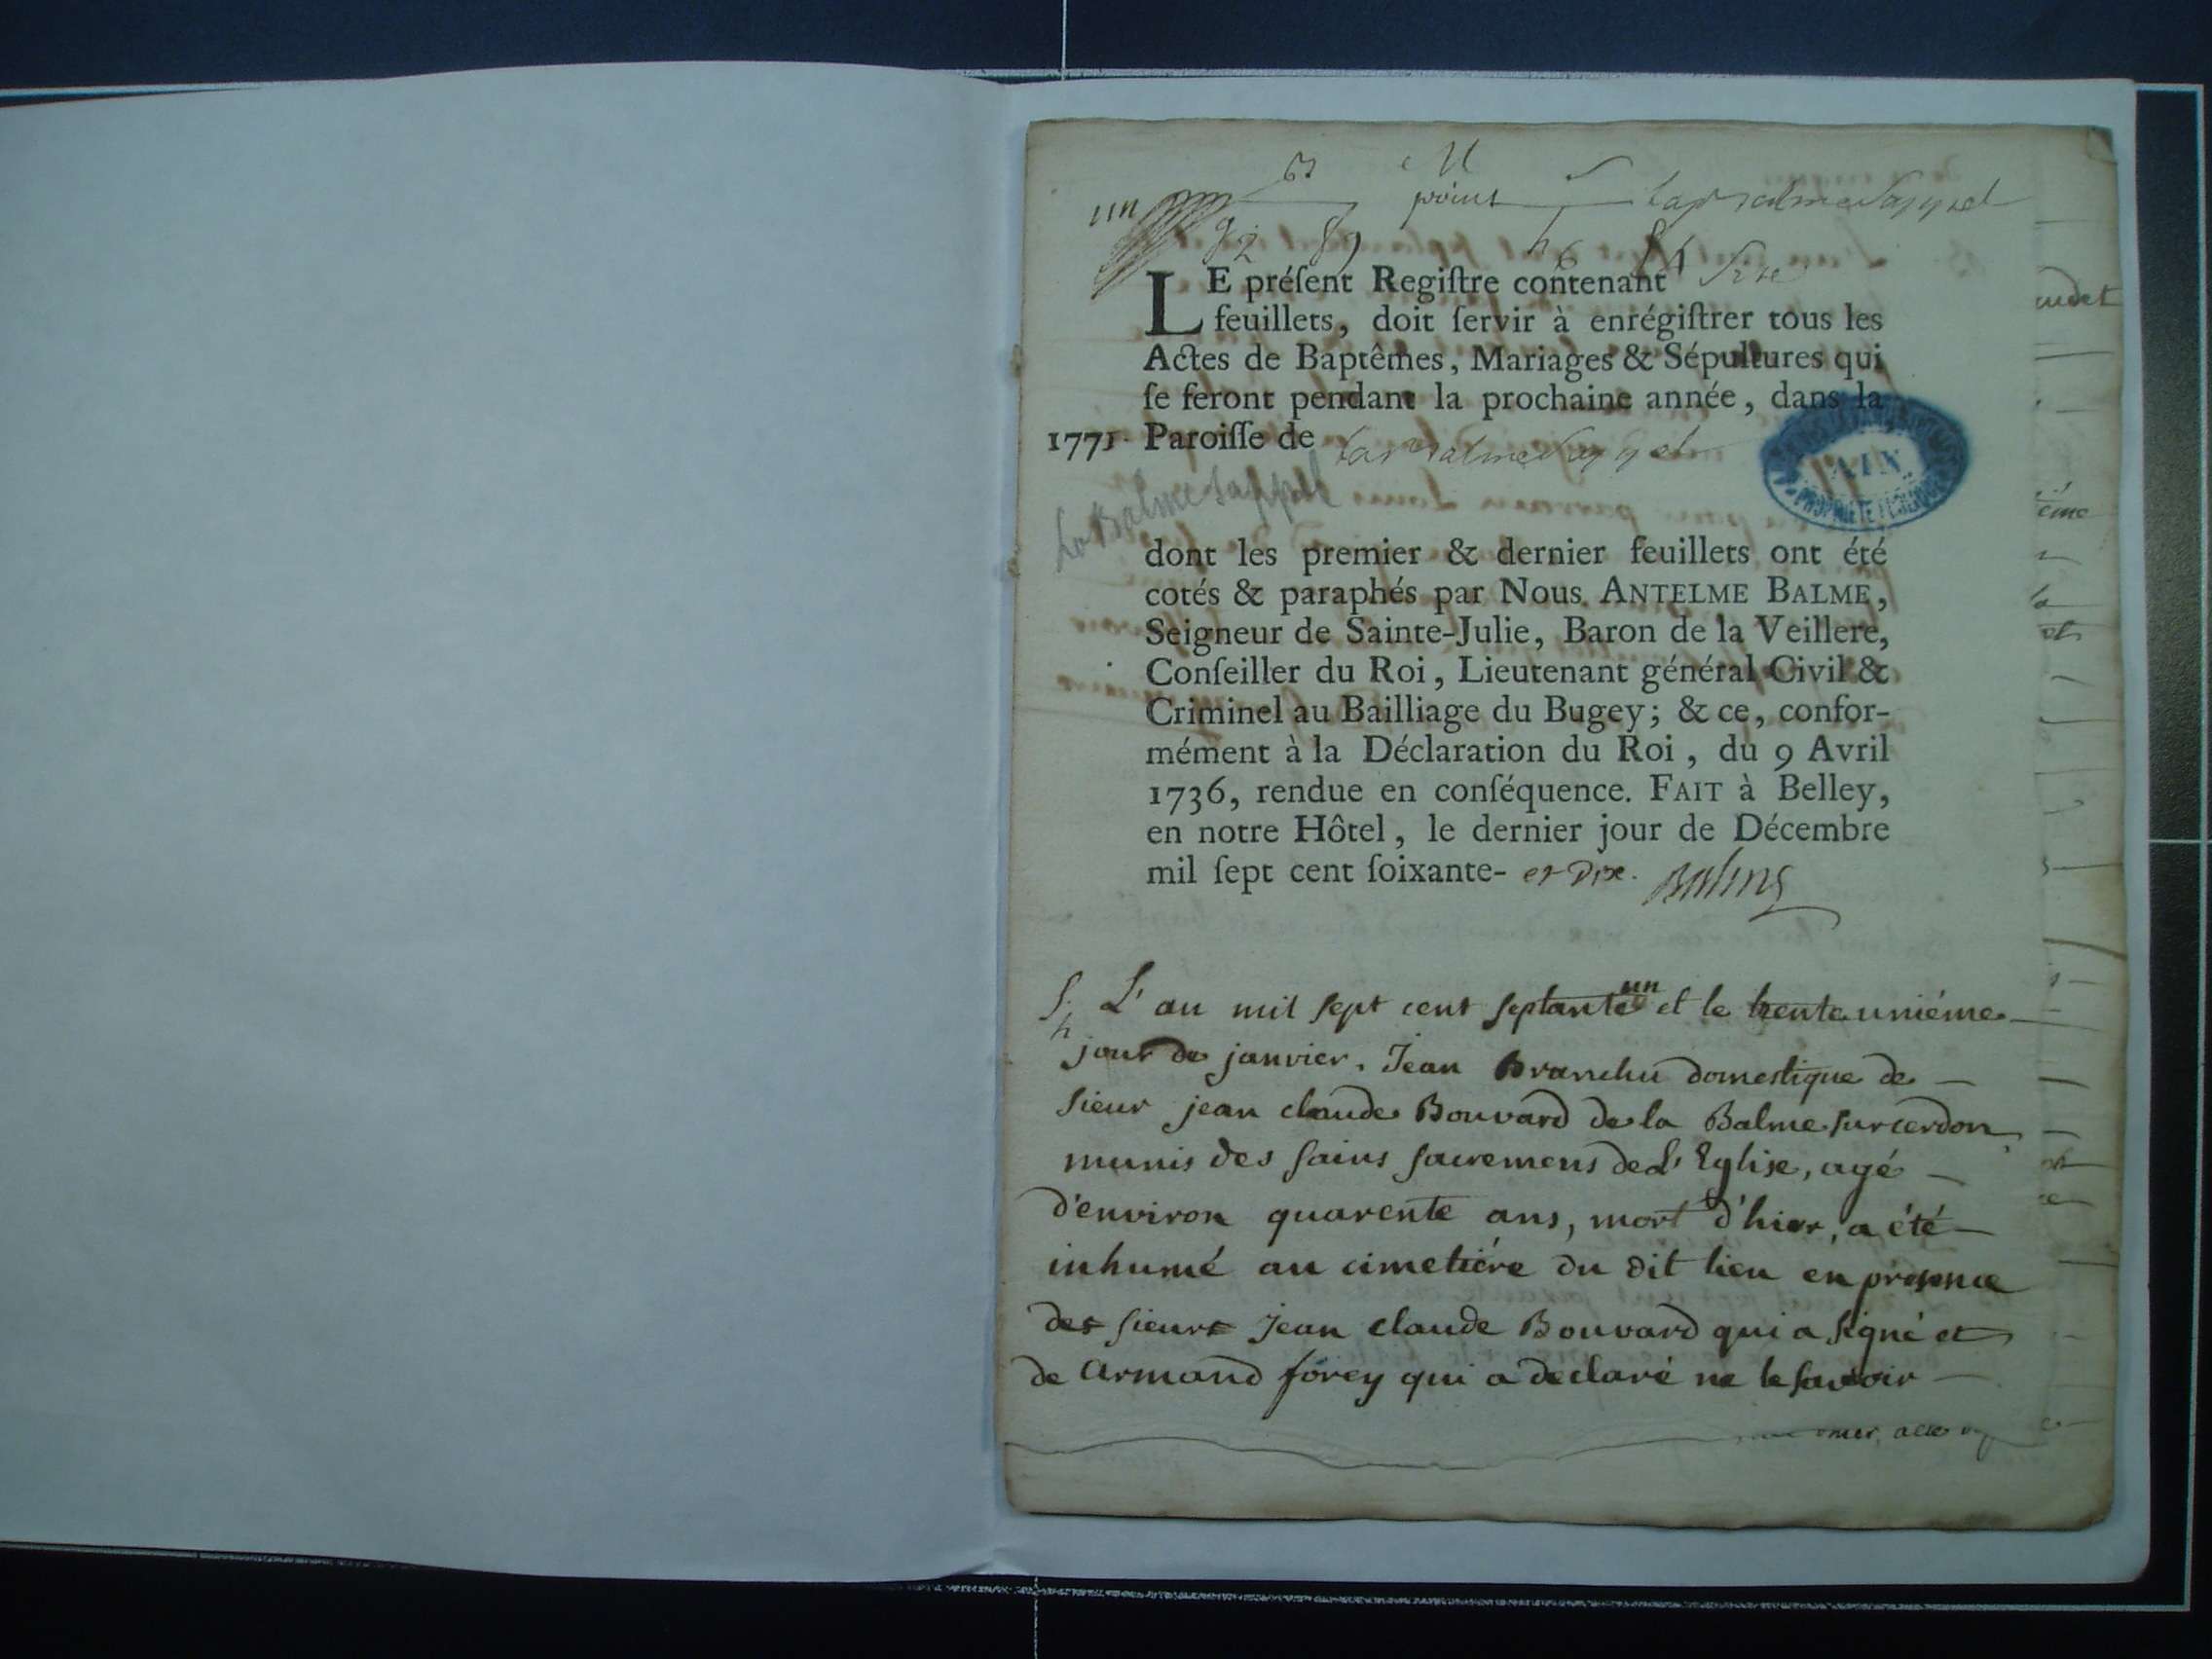 un
B M S
point labalmeSappel
g2 f9 h6 f1
LE préſent Regiſtre contenant Six
feuillets, doit ſervir à enrégiſtrer tous les
Actes de Baptêmes, Mariages & Sépultures qui
ſe feront pendant la prochaine année, dans la
1771. Paroiſſe de labalmeSappel
AIN
PROPRIETE PUBLIQUE
La Balme Sappel
dont les premier & dernier feuillets ont été
cotés & paraphés par Nous ANTELME BALME,
Seigneur de Sainte-Julie, Baron de la Veillere,
Conſeiller du Roi, Lieutenant général Civil &
Criminel au Bailliage du Bugey; & ce, confor-
mément à la Déclaration du Roi, du 9 Avril
1736, rendue en conſéquence. FAIT à Belley,
en notre Hôtel, le dernier jour de Décembre
mil ſept cent ſoixante- et Dix. Balme
S. L'an mil sept cent septante un et le trente uniéme
h jour de janvier. Jean Branchu domestique de
sieur jean claude Bouvard de la Balme sur cerdon
munis des sains sacremens de L'Eglise, agé
d'environ quarente ans, mort d'hier, a été
inhumé au cimetiére du dit lieu en presence
des sieurs Jean claude Bouvard qui a signé et
de armand forey qui a declaré ne le savoir